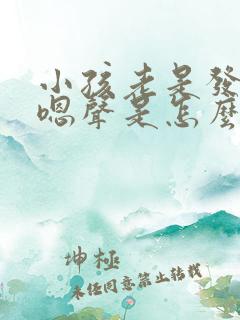 小孩老是發
嗯聲是怎麼
坤極
未經同意禁止轉載